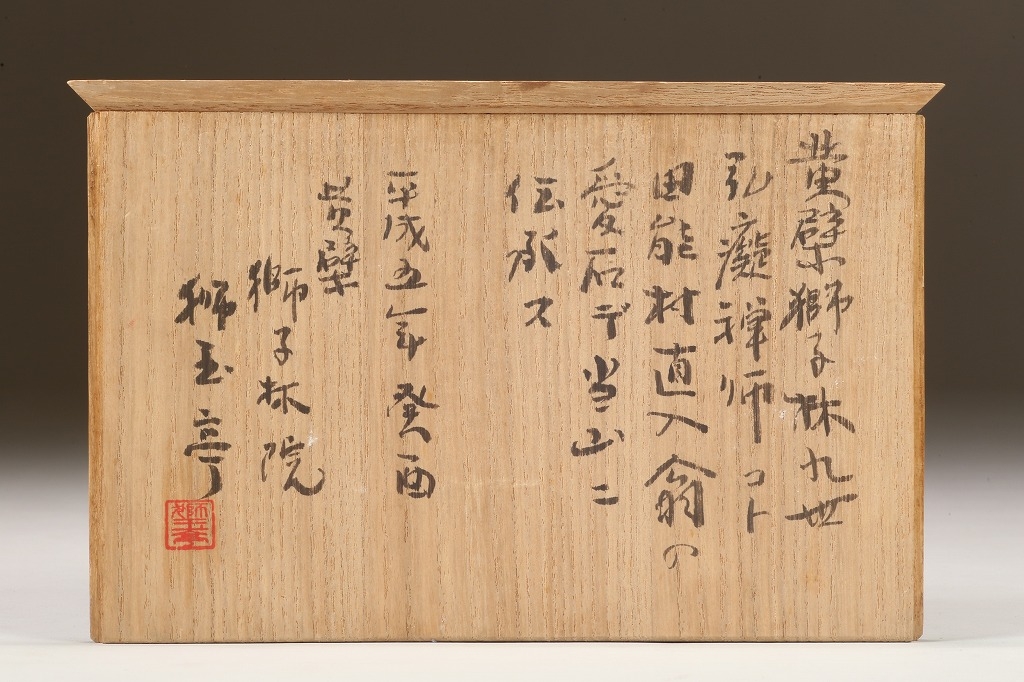 黄檗獅子林九世
弘癡禅师コト
田能村直入翁の
愛石デ当山ニ
伝承ス
平成五年癸酉
黄檗
獅子林院
獅玉亭
獅玉亭